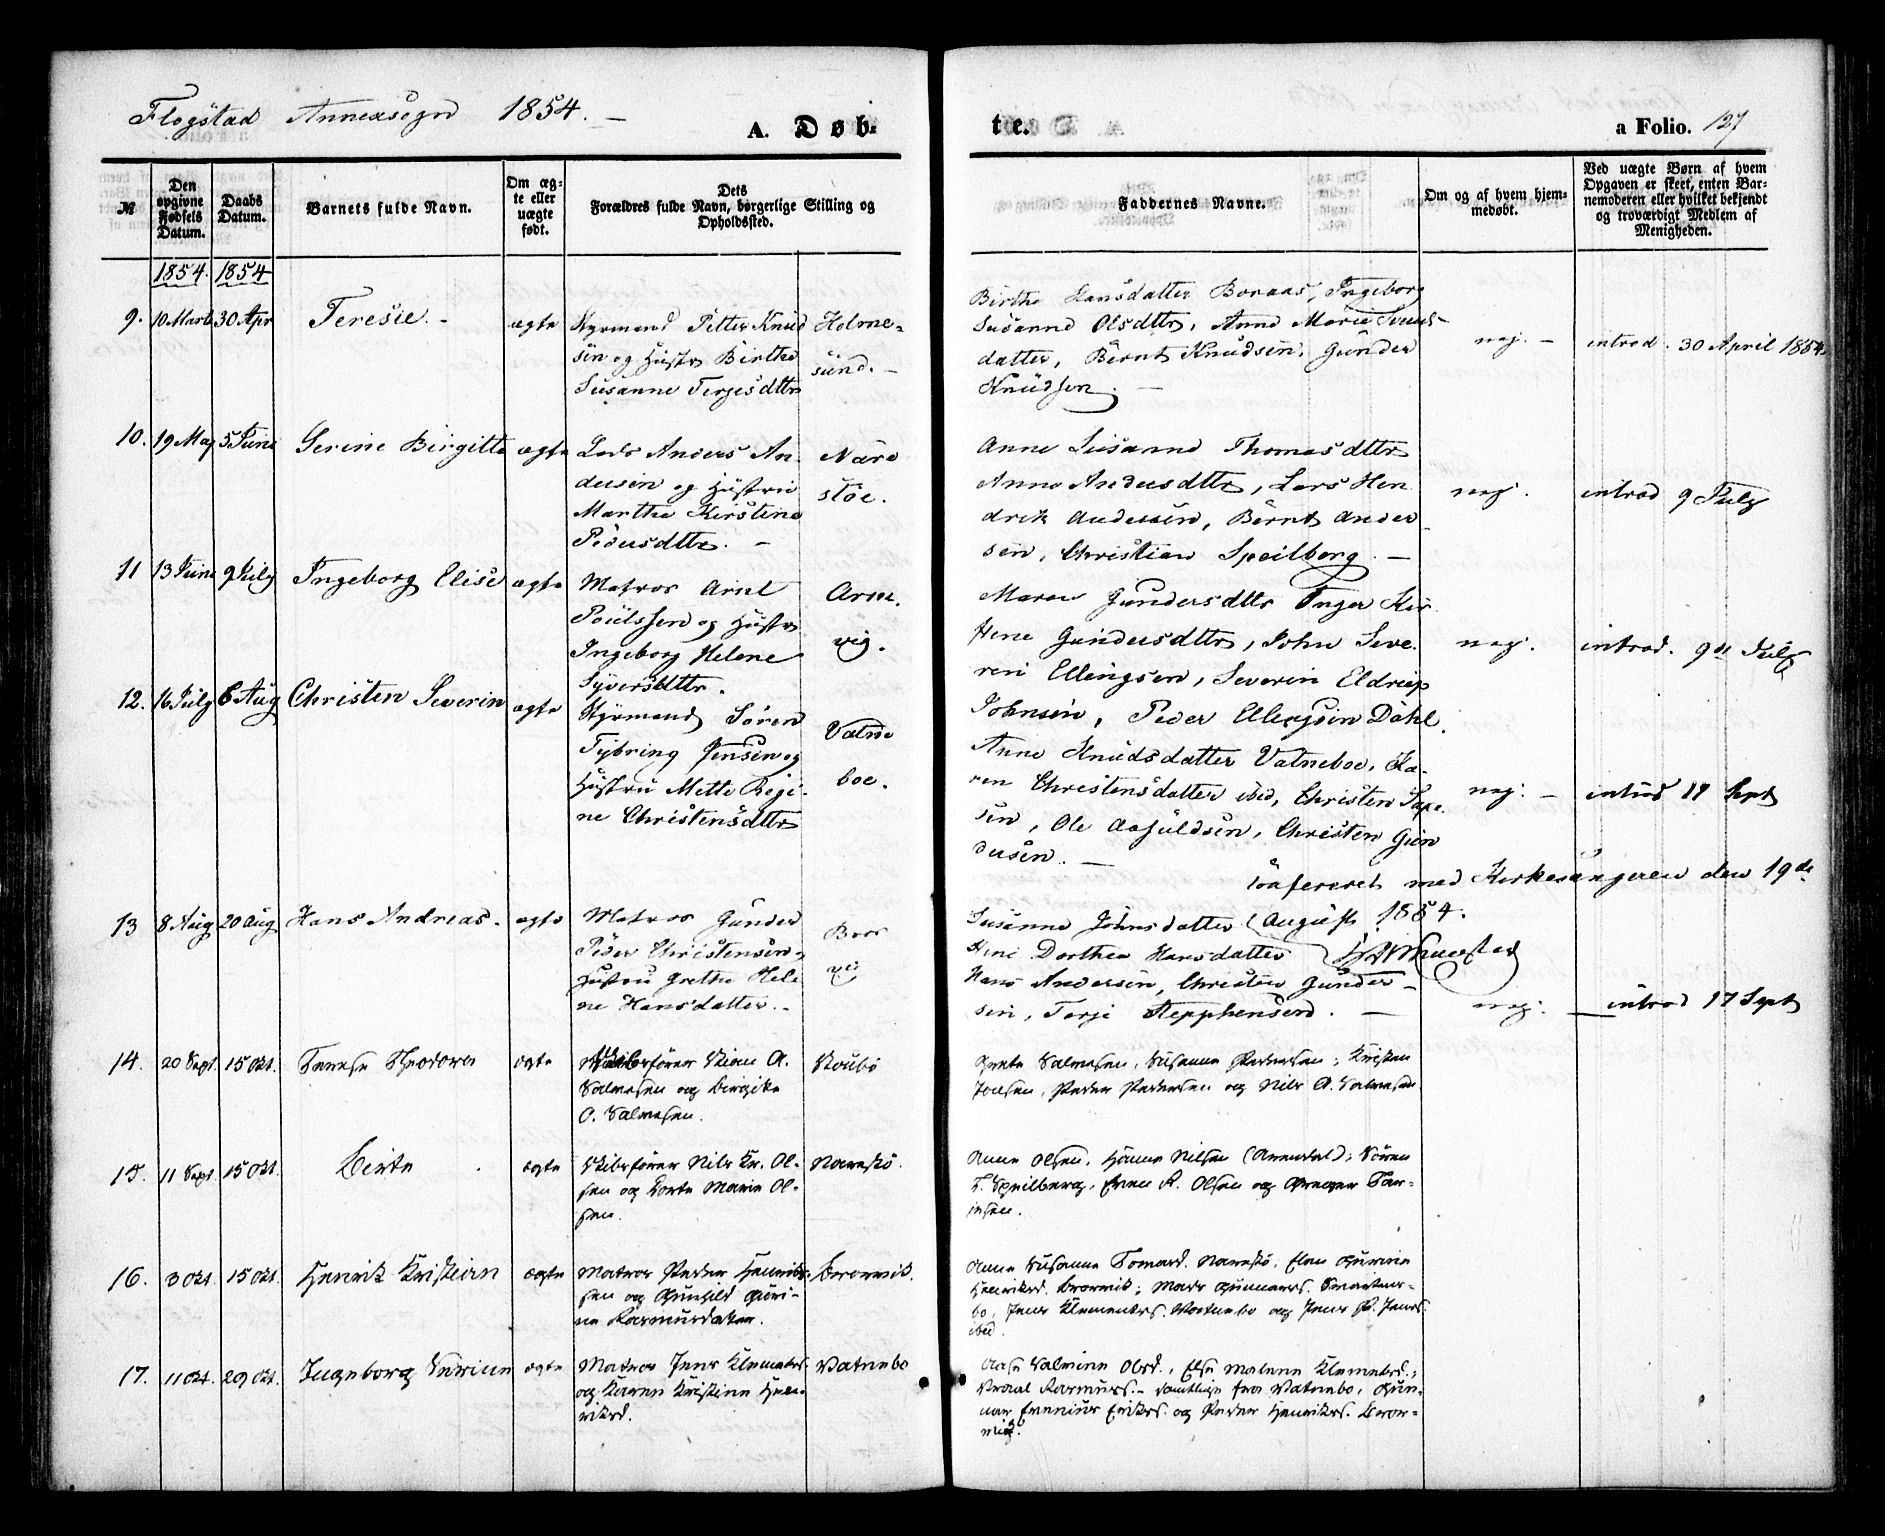 Flogstad Annexsogn 1854. —
A. Døb-
te.
a Folio. 127
№
Den opgivne Fødsels Datum.
Daabs Datum.
Barnets fulde Navn.
Om ægte eller uægte født.
Dets Forældres fulde Navn, borgerlige Stilling og Opholdssted.
Faddernes Navne.
Om og af hvem hjemmedøbt.
Ved uægte Børn af hvem Opgaven er skeet, enten Barnemoderen eller hvilket bekjendt og troværdigt Medlem af Menigheden.
1854. 1854
9. 10 Marts 30 Apr Teresie. - ægte
Styrmand Petter Knud
sen og Hustr Birthe
Susanne Terjesdttr
Holme-
sund. —
Birthe Hansdatter Boraas, Ingeborg
Susanne Olsdttr, Anne Marie
datter, Bernt Knudsen, Gunder
Knudsen. —
nej. — introd. 30 April 1854.
10. 19 May 5 Juni Serine Birgitte ægte
Lods Anders An-
dersen og Hustru
Marthe Kirstine
Pedersdttr. —
Nare
støe.
Anne Susanne Thomasdttr
Anne Andersdttr, Lars Hen
drik Andersen, Bernt Ander
sen, Christian Speilberg. —
nej. introd 9 July
11 13 Juni 9 July Ingeborg Elise ægte
Matros Arnt
Poulssen og Hustr
Ingeborg Helene
Syversdttr.
Arne.
vig.
Maren Gundersdttr Inger Kir
stine Gundersdttr, John Seve.
rin Ellingsen, Severin
Johnsen, Peder Ellingsen Dahl.
nej. introd. 9de July
12. 16 July 6 Aug Christen Severin ægte
Styrmand Søren
Tybring Jensen og
Hustru Mette Regi-
ne Christensdttr
Vatne
boe.
Anne Knudsdatter Vatneboe, Ka-
ren Christensdatter ibid, Christen
sen, Ole Aasuldsen, Christen Gun
dersen. —
nej. — introd 17 Sept
Confereret med Kirkesangeren den 19de
August 1854.
13 8 Aug 20 Aug Hans Andreas. ægte
Matros Gunder
Peder Christensen,
Hustru Grethe Hele
ne Hansdatter. -
Susanne Johnsdatter
Dorthea Hansdatter
Hans Andersen, Christen Gunder-
sen, Terje Stepphensen. —
nej. — introd 17 Sept
14. 20 Sept. 15 Okt. Terese Theodora ægte
Skibsfører Stian A.
Salvesen og Birgitte
O. Salvesen.
Skoubø
Grete Salvesen, Susanne Pedersen, Kristen
Jensen, Peder Pedersen og Nils A. Salvesen
15. 11 Sept. 15 Okt. Berte ægte
Skibsfører Nils Kr. Ol-
sen og Berte Marie Ol-
sen.
Narestø.
Anne Olsen, Hanna Nilsen (Arendal), Søren
T. Speilberg, Even A. Olsen og Gregar Tar-
jesen.
16. 3 Okt. 15 Okt. Henrik Kristian ægte
Matros Peder Henriks-
sen og Gunhild Guri-
ne Rasmusdatter.
Borervik.
Anne Susanne Tomasd. Narestø, Elen Gurine
Henriksd. Borervik; Mads Gunnars.
bo, Jens Klements. Vatnebo og Jens P. Jens.
ibid.
17. 11 Okt. 29 Okt. Ingeborg Serine ægte
Matros Jens Klemets.
og Karen Kristine Hen-
riksd.
Vatnebo
Aase Valmine Olsd., Else Malene Klemetsd.,
Rasmuss. - samtlige fra Vatnebo, Gun-
nar Evenius Eriks. og Peder Henriks. Borer-
vig.